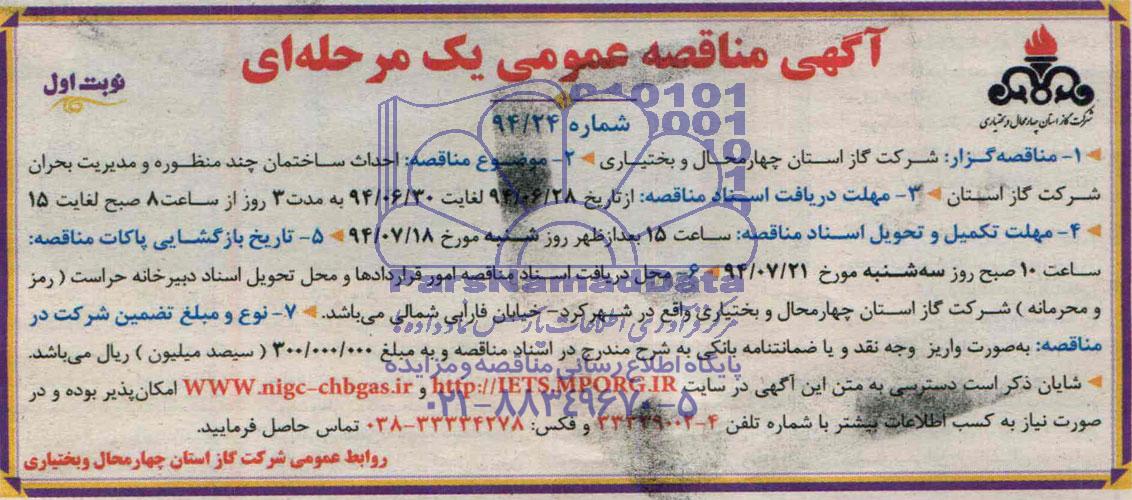 آگهی مناقصه عمومی یک مرحله‌ای
نوبت اول
شرکت گاز استان چهارمحال و بختیاری
شماره ۹۴/۲۴
۱- مناقصه‌گزار: شرکت گاز استان چهارمحال و بختیاری ۲- موضوع مناقصه: احداث ساختمان چند منظوره و مدیریت بحران
شرکت گاز استان ۳- مهلت دریافت اسناد مناقصه: از تاریخ ۹۴/۰۶/۲۸ لغایت ۹۴/۰۶/۳۰ به مدت ۳ روز از ساعت ۸ صبح لغایت ۱۵
۴- مهلت تکمیل و تحویل اسناد مناقصه: ساعت ۱۵ بعدازظهر روز شنبه مورخ ۹۴/۰۷/۱۸ ۵- تاریخ بازگشایی پاکات مناقصه:
ساعت ۱۰ صبح روز سه‌شنبه مورخ ۹۴/۰۷/۲۱ ۶- محل دریافت اسناد مناقصه امور قراردادها و محل تحویل اسناد دبیرخانه حراست ( رمز
و محرمانه ) شرکت گاز استان چهارمحال و بختیاری واقع در شهرکرد- خیابان فارابی شمالی می‌باشد. ۷- نوع و مبلغ تضمین شرکت در
مناقصه: به‌صورت واریز وجه نقد و یا ضمانتنامه بانکی به شرح مندرج در اسناد مناقصه و به مبلغ ۳۰۰/۰۰۰/۰۰۰ ( سیصد میلیون ) ریال می‌باشد.
شایان ذکر است دسترسی به متن این آگهی در سایت http://IETS.MPORG.IR و WWW.nigc-chbgas.ir امکان‌پذیر بوده و در
صورت نیاز به کسب اطلاعات بیشتر با شماره تلفن ۴-۳۳۳۳۹۰۰۲ و فکس: ۳۳۳۳۴۲۷۸-۰۳۸ تماس حاصل فرمایید.
روابط عمومی شرکت گاز استان چهارمحال وبختیاری
ParsNamadData
پایگاه اطلاع رسانی مناقصه و مزایده
۰۲۱-۸۸۳۴۹۶۷۰-۵